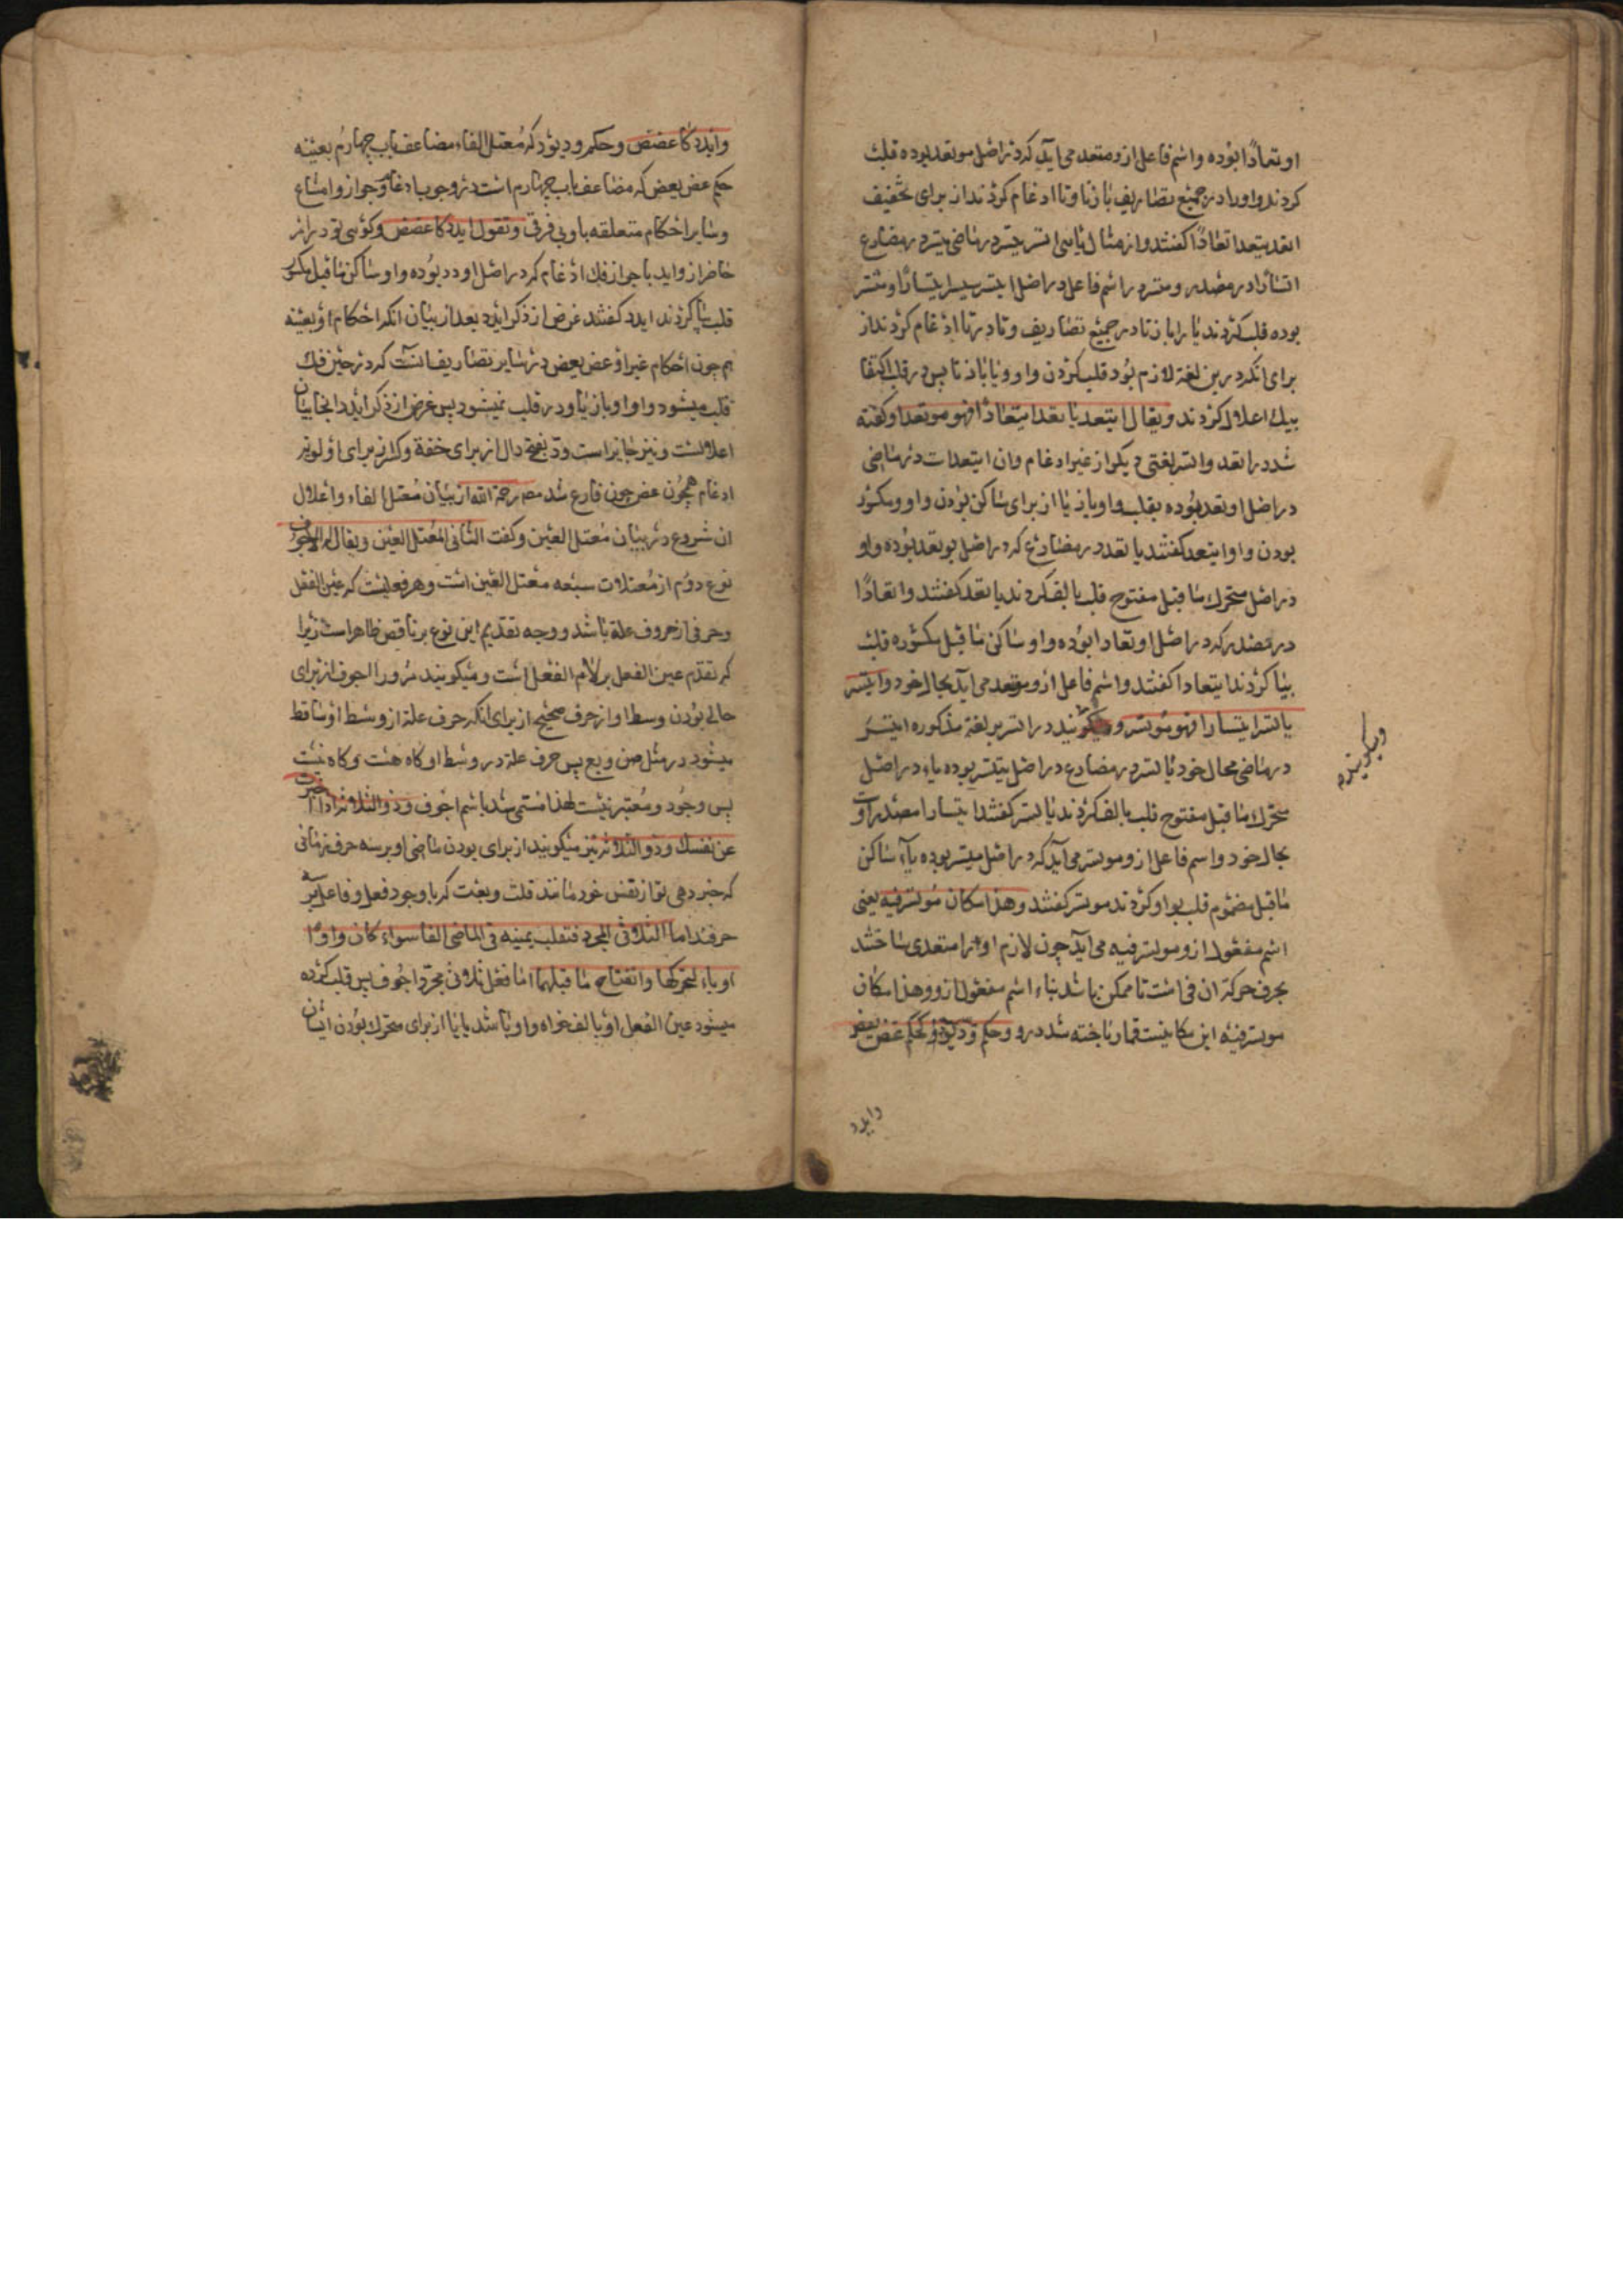 اوتعادًا بوده واسم فاعل ازو متعد می آید که در اصل موتعد بوده قلب
کردند واو را در جمیع تصاریف بازتا وتا ادغام کردند از برای تخفیف
اتعد یتعد اتعادًا کفتند واز مثال یایی اتسر یتسر در ماضی یتسر در مضارع
اتسارًا در مصدر ومتسر در اسم فاعل در اصل ایتسر ییتسر ایتسارًا ومیتسر
بوده قلب کردند یا را بازتا در جمیع تصاریف وتا در تا ادغام کردند از
برای انکه درین لغة لازم بود قلب کردن واو ویا بازتا پس در قلب اکتفا
بیک اعلال کردند ویقال ایتعد یاتعد ایتعادًا فهو موتعد وکفته
شد در اتعد واتسر لغتی دیکر از غیر ادغام وان ایتعدات در ماضی
در اصل اوتعد بوده بقلب واو باز یا از برای ساکن بودن واو ومکسور
بودن واو ایتعد کفتند یاتعد در مضارع که در اصل یوتعد بوده واو
در اصل متحرک ماقبل مفتوح قلب بالف کردند یاتعد کفتند واتعادًا
در مصدر که در اصل اوتعادا بوده واو ساکن ماقبل مکسور قلب
بیا کردند ایتعادا کفتند واسم فاعل ازو موتعد می آید بحال خود وایتسر
یاتسر ایتسارا فهو موتسر ومیکویند در اتسر بر لغة مذکوره ایتسر
در ماضی بحال خود یاتسر در مضارع در اصل ییتسر بوده یاء در اصل
متحرک ماقبل مفتوح قلب بالف کردند یاتسر کفتند ایتسارا مصدر اوست
بحال خود واسم فاعل ازو موتسر می آید که در اصل میتسر بوده یاء ساکن
ماقبل مضموم قلب بواو کردند موتسر کفتند وهذا مکان موتسر فیه یعنی
اسم مفعول ازو موتسر فیه می آید چون لازم او را متعدی ساختند
بحرف جر که ان فی است تا ممکن باشد بناء اسم مفعول ازو وهذا مکان
موتسر فیه این مکانیست قمار باخته شد درو وحکم ودّ یودّ کحکم عضّ یعضّ
وایدد
ومیکویند
وایدد کاعضض وحکم ود یود که معتل الفاء مضاعف باب چهارم بعینه
حکم عض یعض که مضاعف باب چهارم است در وجوب ادغام وجواز وامتناع
وسایر احکام متعلقه باو بی فرق وتقول ایدد کاعضض وکوئی تو در امر
حاضر از واید با جواز فک ادغام که در اصل اودد بوده واو ساکن ماقبل مکسور
قلب بیا کردند ایدد کفتند غرض از ذکر ایدد بعد از بیان انکه احکام او بعینه
هم چون احکام غیر او عض یعض در سایر تصاریف انست که در حین فک
قلب میشود واو او باز یا ودر قلب نمیشود پس غرض از ذکر ایدد انجا بیان
اعلالست ونیز جایز است ودّ بفتح دال از برای خفة وکسر از برای اولویت
ادغام همچون عض چون فارغ شد مص رحمة الله از بیان معتل الفاء واعلال
ان شروع در بیان معتل العین وکفت الثانی المعتل العین ویقال له الاجوف
نوع دوم از معتلات سبعه معتل العین است وهر فعلیست که عین الفعل
وحرفی از حروف علة باشد ووجه تقدیم این نوع بر ناقص ظاهر است زیرا
که تقدم عین الفعل بر لام الفعل است ومیکویند مرو را اجوف از برای
خالی بودن وسط او از حرف صحیح از برای انکه حرف علة از وسط او ساقط
میشود در مثل صن وبع پس حرف علة در وسط او کاه هست وکاه نیست
پس وجود ومعتبر نیست لهذا مسمی شد باسم اجوف وذو الثلاثة اذا اخبرت
عن نفسک وذو الثلاثة نیز میکویند از برای بودن ماضی او بر سه حرف زمانی
که خبر دهی تو از نفس خود مانند قلت وبعت که با وجود فعل وفاعل بر سه
حرفند اما الثلاثی المجرد فتقلب عینه فی الماضی الفا سواء کان واوًا
او یاء لتحرکها وانفتاح ما قبلهما اما فعل ثلاثی مجرد اجوف پس قلب کرده
میشود عین الفعل او بالف خواه واو باشد یا یا از برای متحرک بودن ایشان